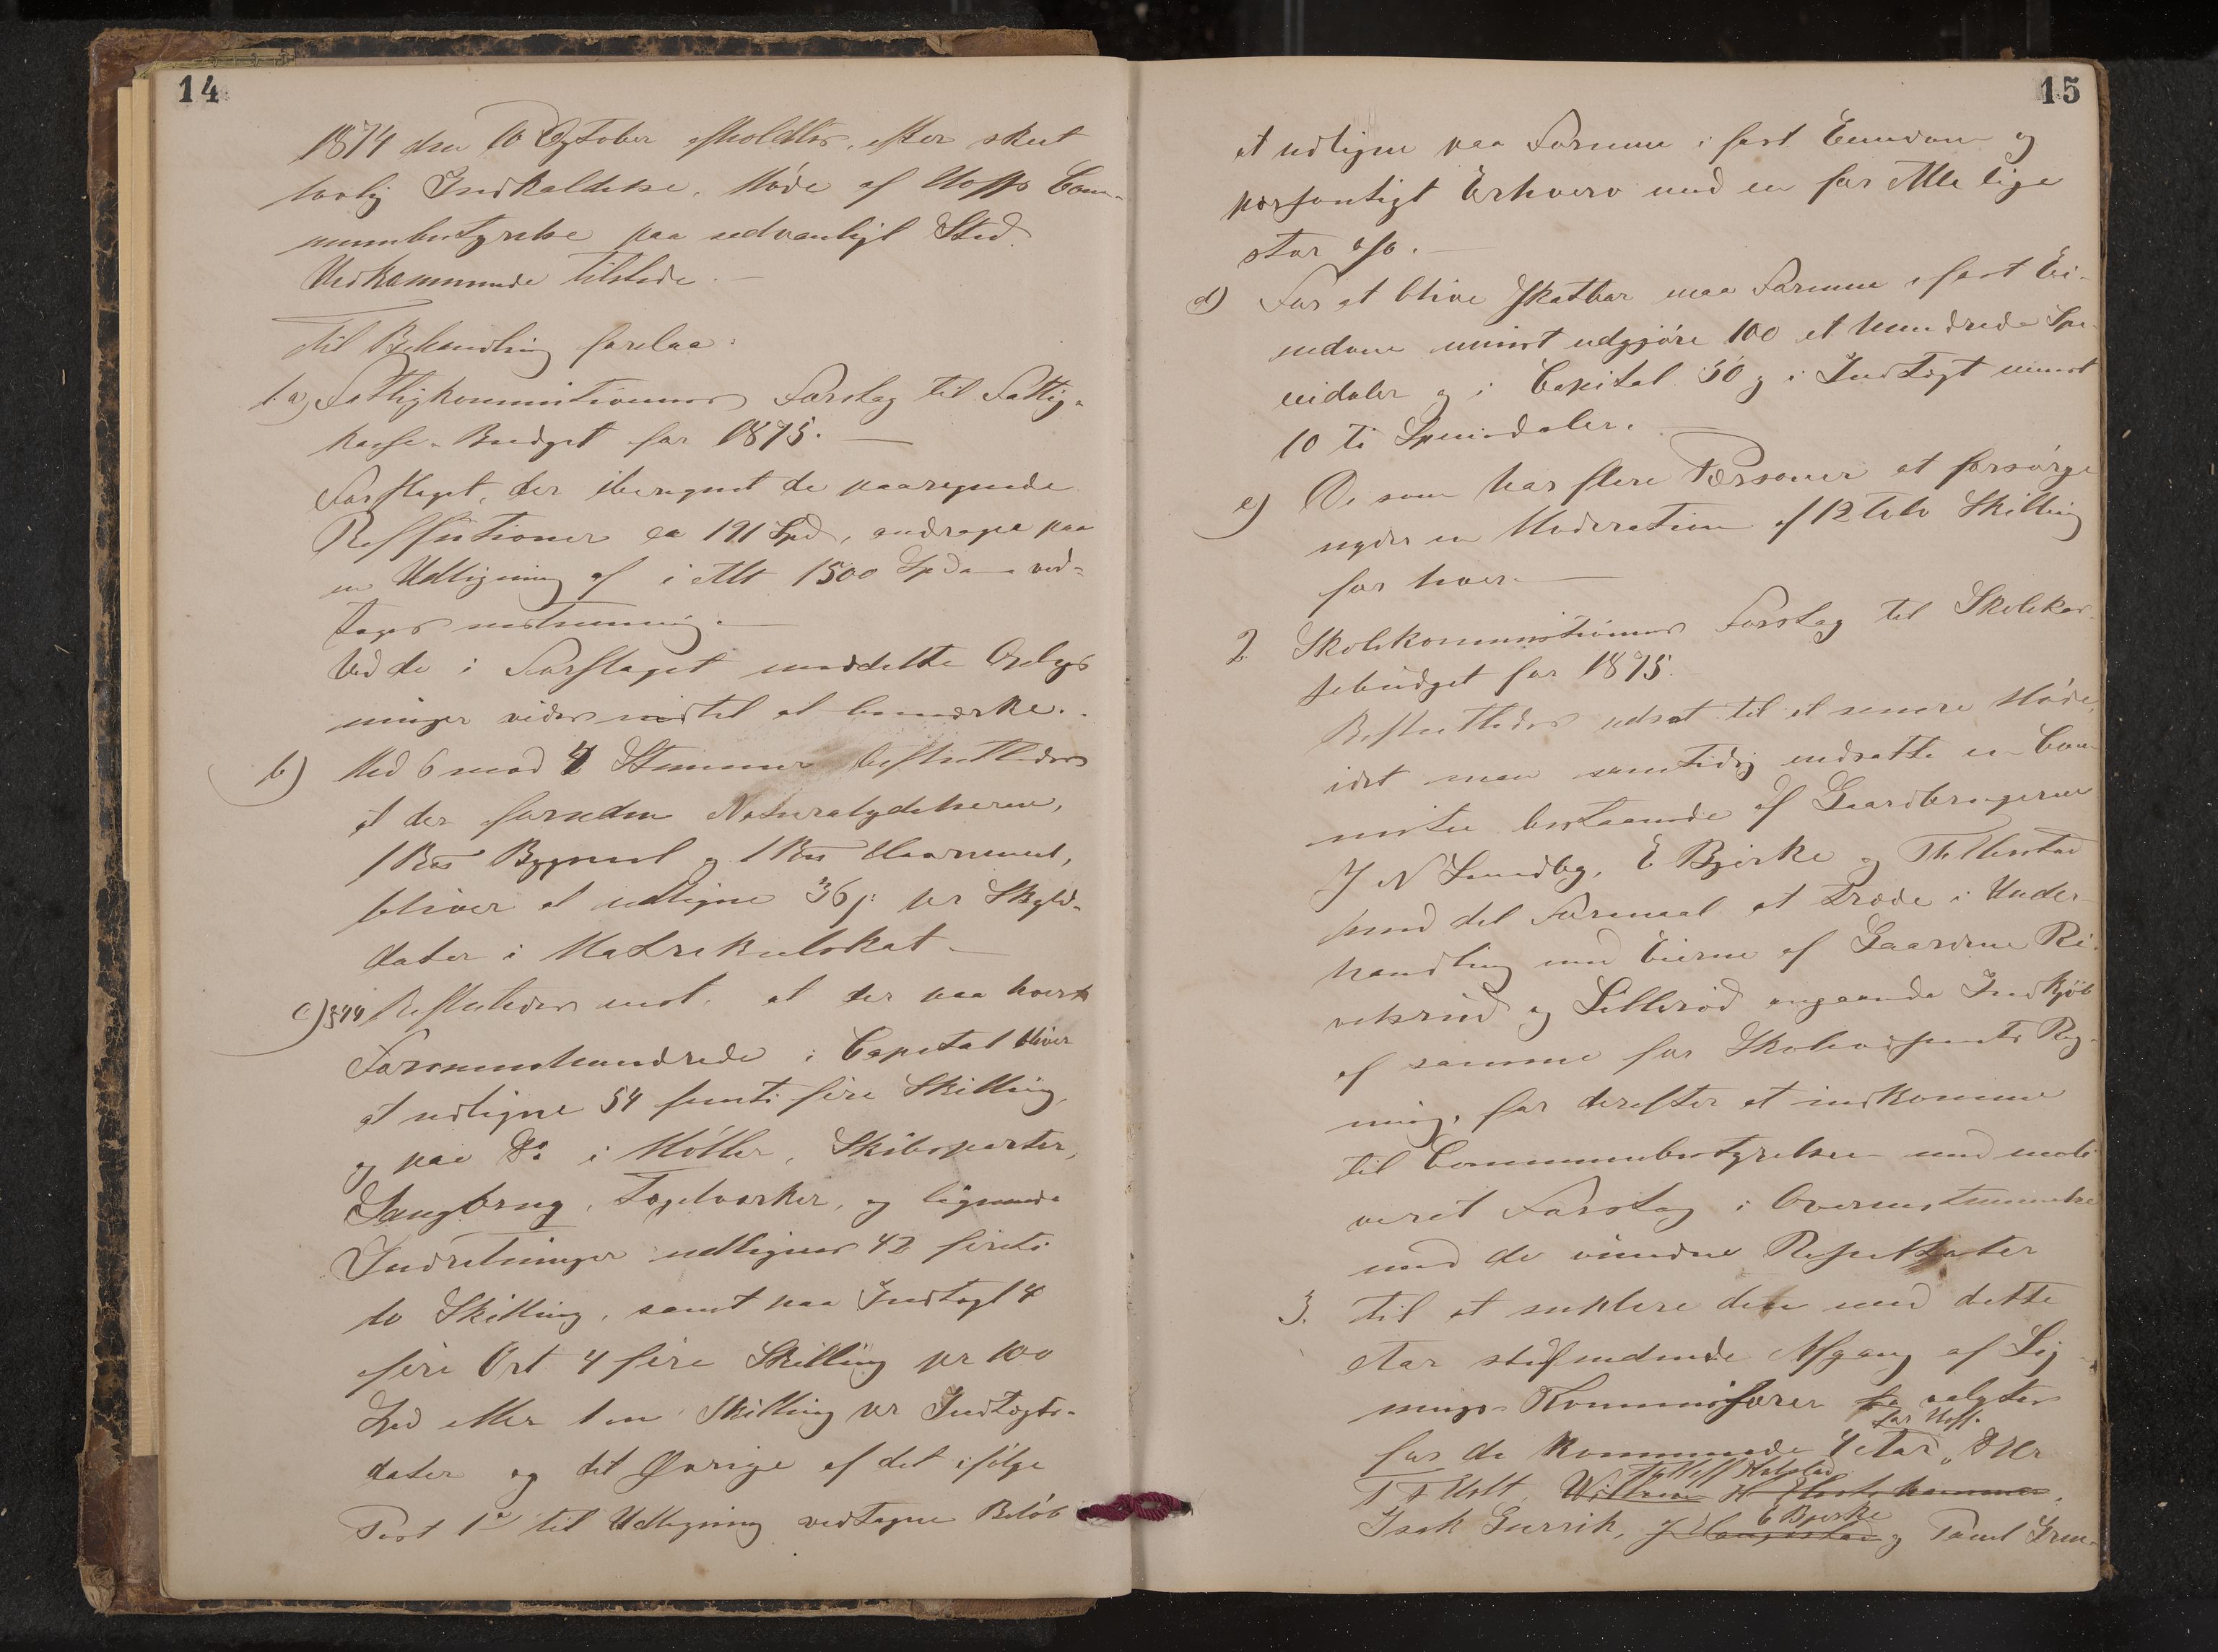 14
1874 den 10 October afholdtes, efter skeet
lovlig Indkaldelse, Møde af Hoffs Com-
munebestyrelse paa sedvanligt Sted.
Vedkommende tilstede.
Til Behandling forelaa:
1. a) Fattigkommissionens Forslag til Fattig-
kasse-Budget for 1875.
Forslaget, der iberegnet de paaregnede
ca 191 Spd, andrager paa
en Udligning af i Alt 1500 Spd ved-
toges enstemmig.
Ved de i Forslaget meddelte Oplys
ninger vides intet at bemærke.
b) Med 6 mod 4 Stemmer besluttedes
at der foruden Naturalydelserne,
1 Bygmel og 1 Havremel,
bliver at udligne 36 ß pr Skyld-
daler i Matrikulskat
c) Besluttedes enst. at der paa hvert
Formueshundrede i Capital bliver
at udligne 54 femti fire Skilling,
og paa Do i Møller, Skibsparter,
Saugbrug, Teglværker, og lignende
Indretninger udlignes 42 firti
to Skilling, samt paa Indtægt 4
fire Ort 4 fire Skilling pr 100
Spd eller 1 en Skilling pr Indtægts-
daler og det Øvrige af det ifølge
Post 1a til Udligning vedtagne Beløb
15
at udligne paa Formue i fast Eiendom og
personligt Erhverv med en for Alle lige
stor
d) For at blive skatbar maa Formue i fast Ei-
endom mindst udgjøre 100 et hundrede Spe-
ciedaler og i Capital 50 og i Indtægt mindst
10 ti Speciedaler.
e) De som har flere Personer at forsørge
nyder en Moderation af 12 tolv Skilling
for hver.
2 Skolekommissionens Forslag til Skolekas-
sebudget for 1875.
Besluttedes udsat til et senere Møde,
idet man samtidig nedsatte en Com
mitee bestaaende af Gaardbrugerne
J N Lundby, E Bjerke og Th
med det Formaal at træde i Under-
handling med Eierne af Gaardene
og Sillerød angaaende Indkjøb
af samme for Regn-
ning, for derefter at indkomme
til Communebestyrelsen med moti
veret Forslag i Overensstemmelse
med de vundne Resultater
3. Til at supplere den med dette
Aar stedfindende Afgang af Lig
nings-Kommissærer valgtes
for Hoff
for de kommende Aar
Holt,
E Bjerke
Isak og